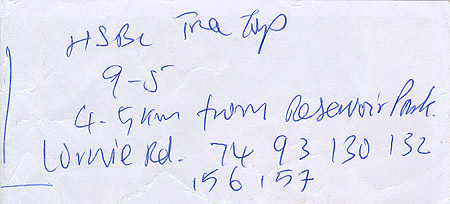 HSBC Tree Top
9-5
4-5km from Reservoir Park.
Lornie Rd. 74 93 130 132
156, 157